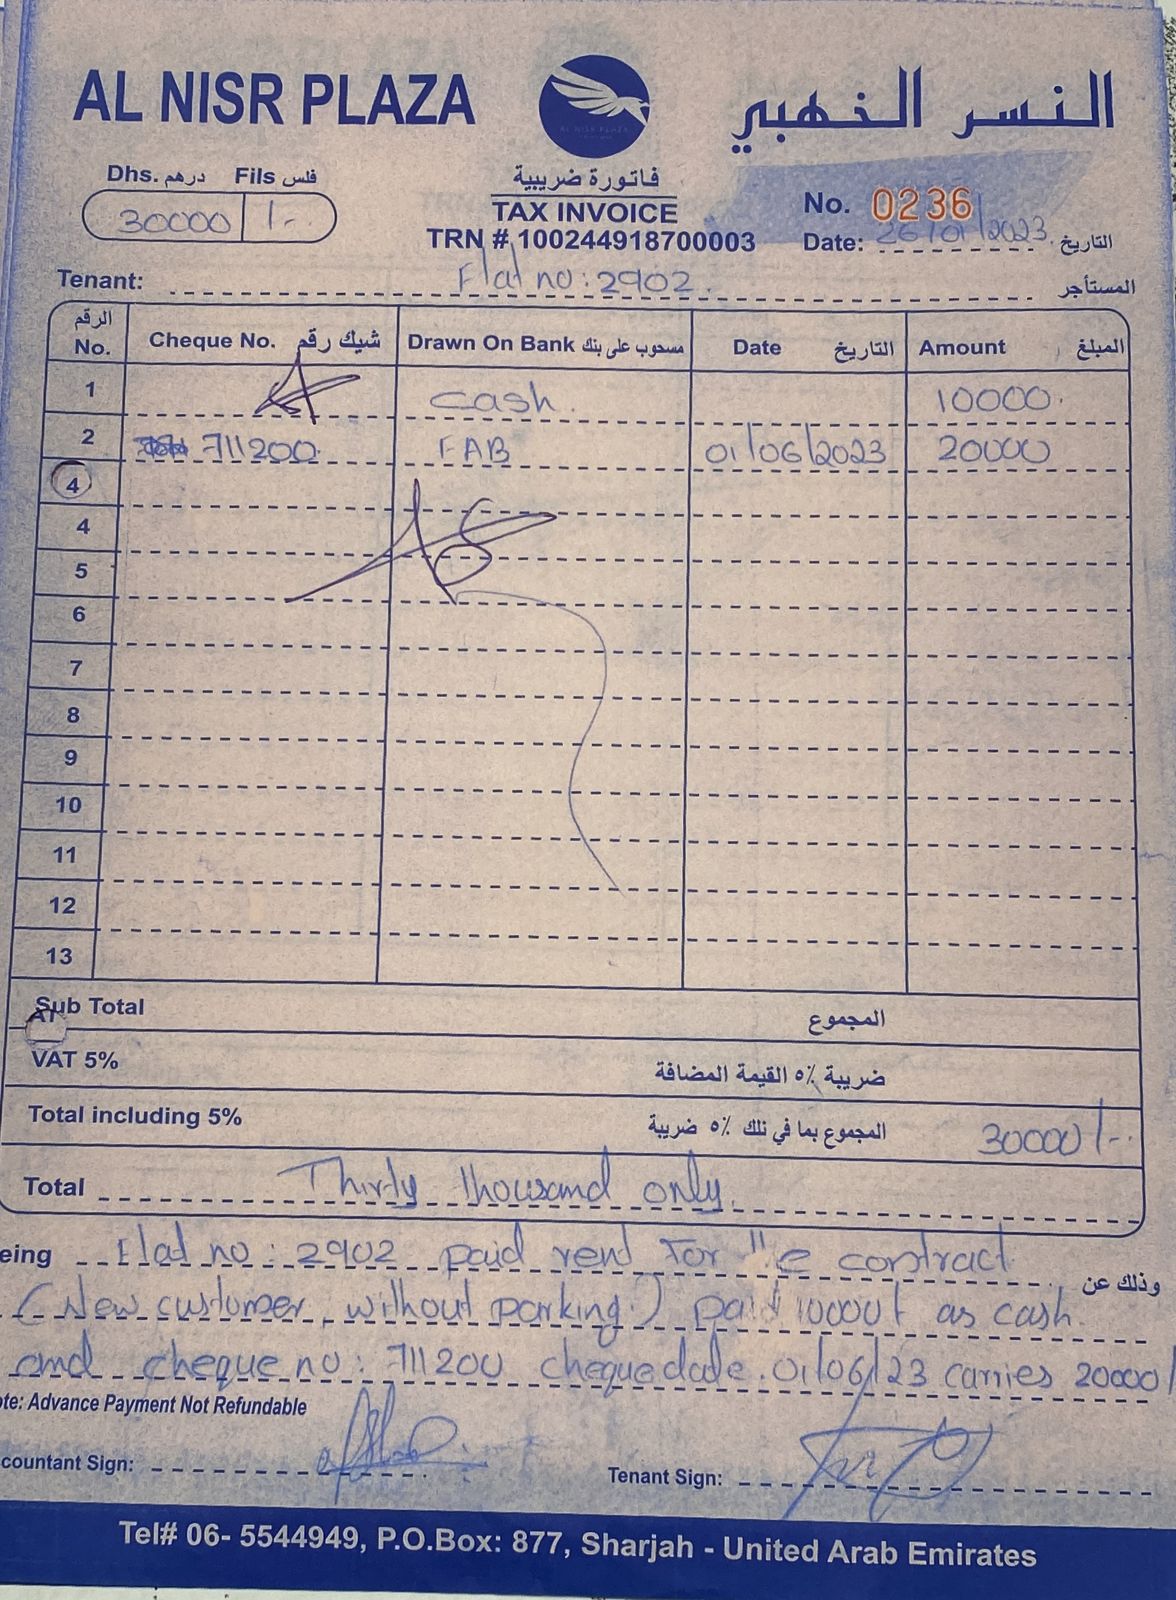 AL NISR PLAZA
النسر الذهبي
AL NISR PLAZA
Dhs. درهم Fils فلس
30000 /-
فاتورة ضريبية
TAX INVOICE
TRN # 100244918700003
No. 0236
Date: 26/01/2023 التاريخ
Tenant: Flat no: 2902. المستأجر
الرقم No. Cheque No. شيك رقم Drawn On Bank مسحوب على بنك Date التاريخ Amount المبلغ
1 cash. 10000.
2 711200 FAB 01/06/2023 20000
4
4
5
6
7
8
9
10
11
12
13
Sub Total المجموع
VAT 5% ضريبة ٥٪ القيمة المضافة
Total including 5% المجموع بما في تلك ٥٪ ضريبة 30000/-.
Total Thirty thousand only.
eing Flat no: 2902 paid rent for contract وذلك عن
(New customer, without parking.) paid 10000/ as cash.
and cheque no: 711200 cheque date. 01/06/23 carries 20000/
ote: Advance Payment Not Refundable
countant Sign: Tenant Sign:
Tel# 06- 5544949, P.O.Box: 877, Sharjah - United Arab Emirates